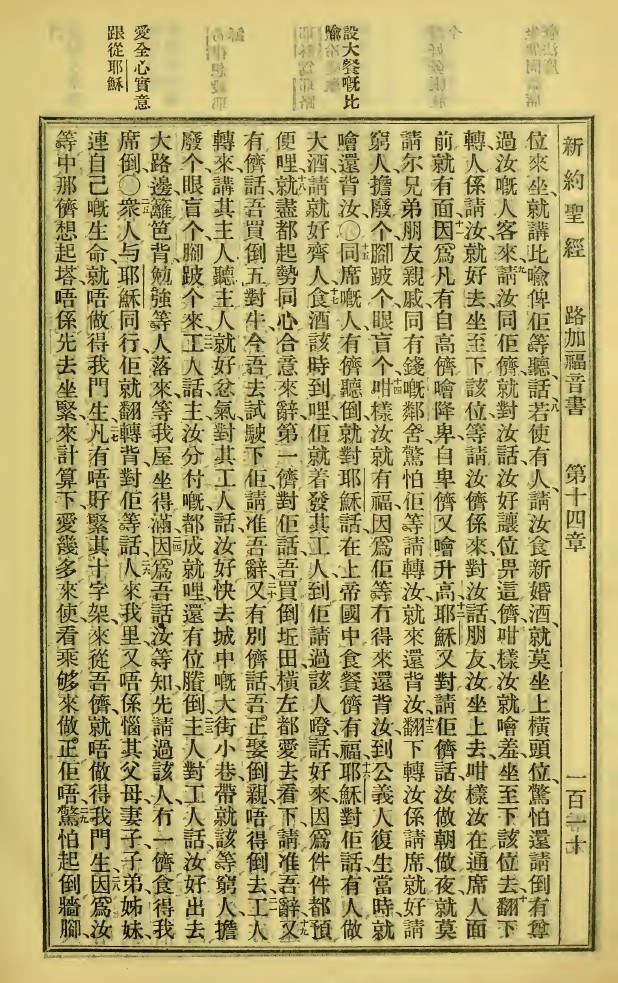 新約聖經 路加福音書 第十四章 一百一十
位來坐就講此喩俾佢等聽話八若使有人請汝食新婚酒就莫坐上橫頭位驚怕還請倒有尊
過汝嘅人客來九請汝同佢儕就對汝話汝好讓位畀這儕咁樣汝就噲羞坐至下該位去十翻下
轉人係請汝就好去坐至下該位等請汝儕係來對汝話朋友汝坐上去咁樣汝在通席人面
前就有面十一因爲凡有自高儕噲降卑自卑儕又噲升高十二耶穌又對請佢儕話汝做朝做夜就莫
請尔兄弟朋友親戚同有錢嘅鄰舍驚怕佢等請轉汝就來還背汝十三翻下轉汝係請席就好請
窮人擔廢个腳跛个眼盲个十四咁樣汝就有福因爲佢等冇得來還背汝到公義人復生當時就
噲還背汝〇十五同席嘅人有儕聽倒就對耶穌話在上帝國中食餐儕有福十六耶穌對佢話有人做
大酒請就好齊人食酒十七該時到哩佢就着發其工人到佢請過該人噔話好來因爲件件都預
便哩十八就盡都起勢同心合意來辭第一儕對佢話吾買倒坵田橫左都愛去看下請准吾辭十九又
有儕話吾買倒五對牛今吾去試駛下佢請准吾辭二十又有別儕話吾正娶倒親唔得倒去二一工人
轉來講其主人聽主人就好忿氣對其工人話汝好快去城中嘅大街小巷帶就該等窮人擔
廢个眼盲个腳跛个來二二工人話主汝分付嘅都成就哩還有位賸倒二三主人對工人話汝好出去
大路邊籬笆背勉強等人落來等我屋坐得滿二四因爲吾話汝等知先請過該人冇一儕食得我
席倒〇二五衆人与耶穌同行佢就翻轉背對佢等話二六人來我里又唔係惱其父母妻子子弟姊妹
連自己嘅生命就唔做得我門生二七凡有唔好緊其十字架來從吾儕就唔做得我門生二八因爲汝
等中那儕想起塔唔係先去坐緊來計算下愛幾多來使看乘够來做正佢唔二九驚怕起倒牆腳
設大餐嘅比
喩
愛全心實意
跟從耶穌